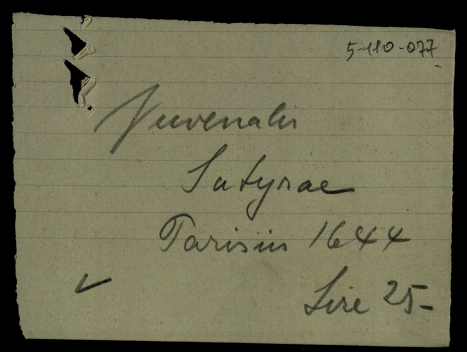 5-110-077
Juvenalis
Satyrae
Parisiis 1644
Lire 25-